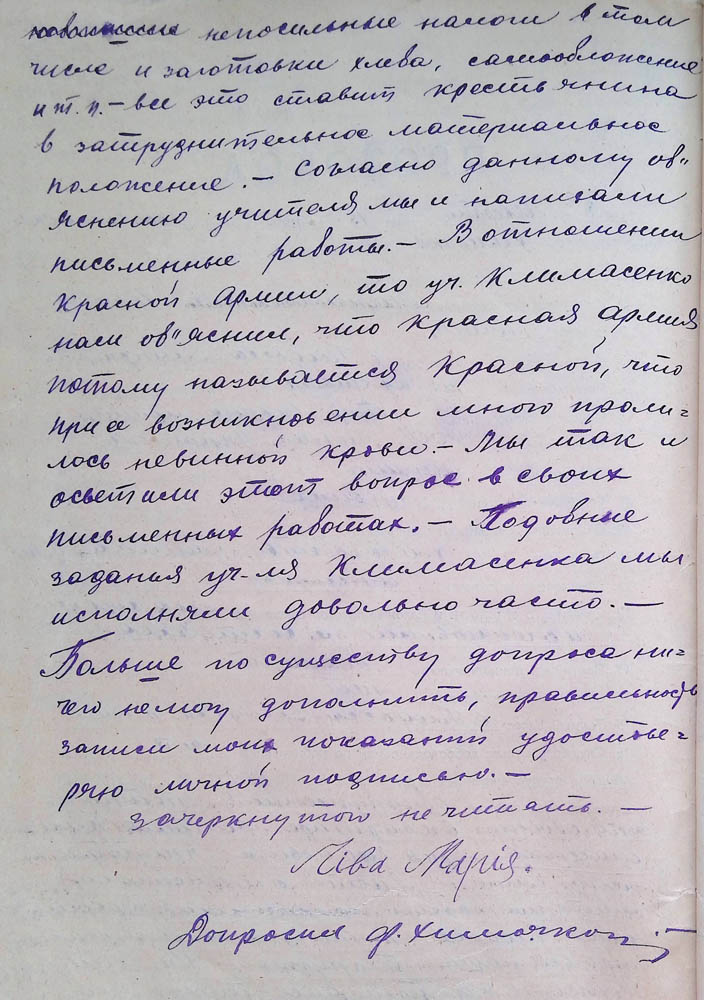 непосильные налоги в том
числе и заготовки хлеба, самообложение
и т. п. – все это ставит крестьянина
в затруднительное материальное
положение. – Согласно данному об"
яснению учителя мы и написали
письменные работы. – В отношении
Красной Армии, то уч. Климасенко
нам об"яснил, что Красная армия
потому называется Красной, что
при ее возникновении много проли=
лось невинной крови. – Мы так и
осветили этот вопрос в своих
письменных работах. – Подобные
заданья уч-ля Климасенка мы
исполняли довольно часто. –
Больше по существу допроса ни=
чего не могу дополнить, правильность
записи моих показаний удостове=
ряю личной подписью. –
зачеркнутого не читать. –
Ліва Марія.
Допросил